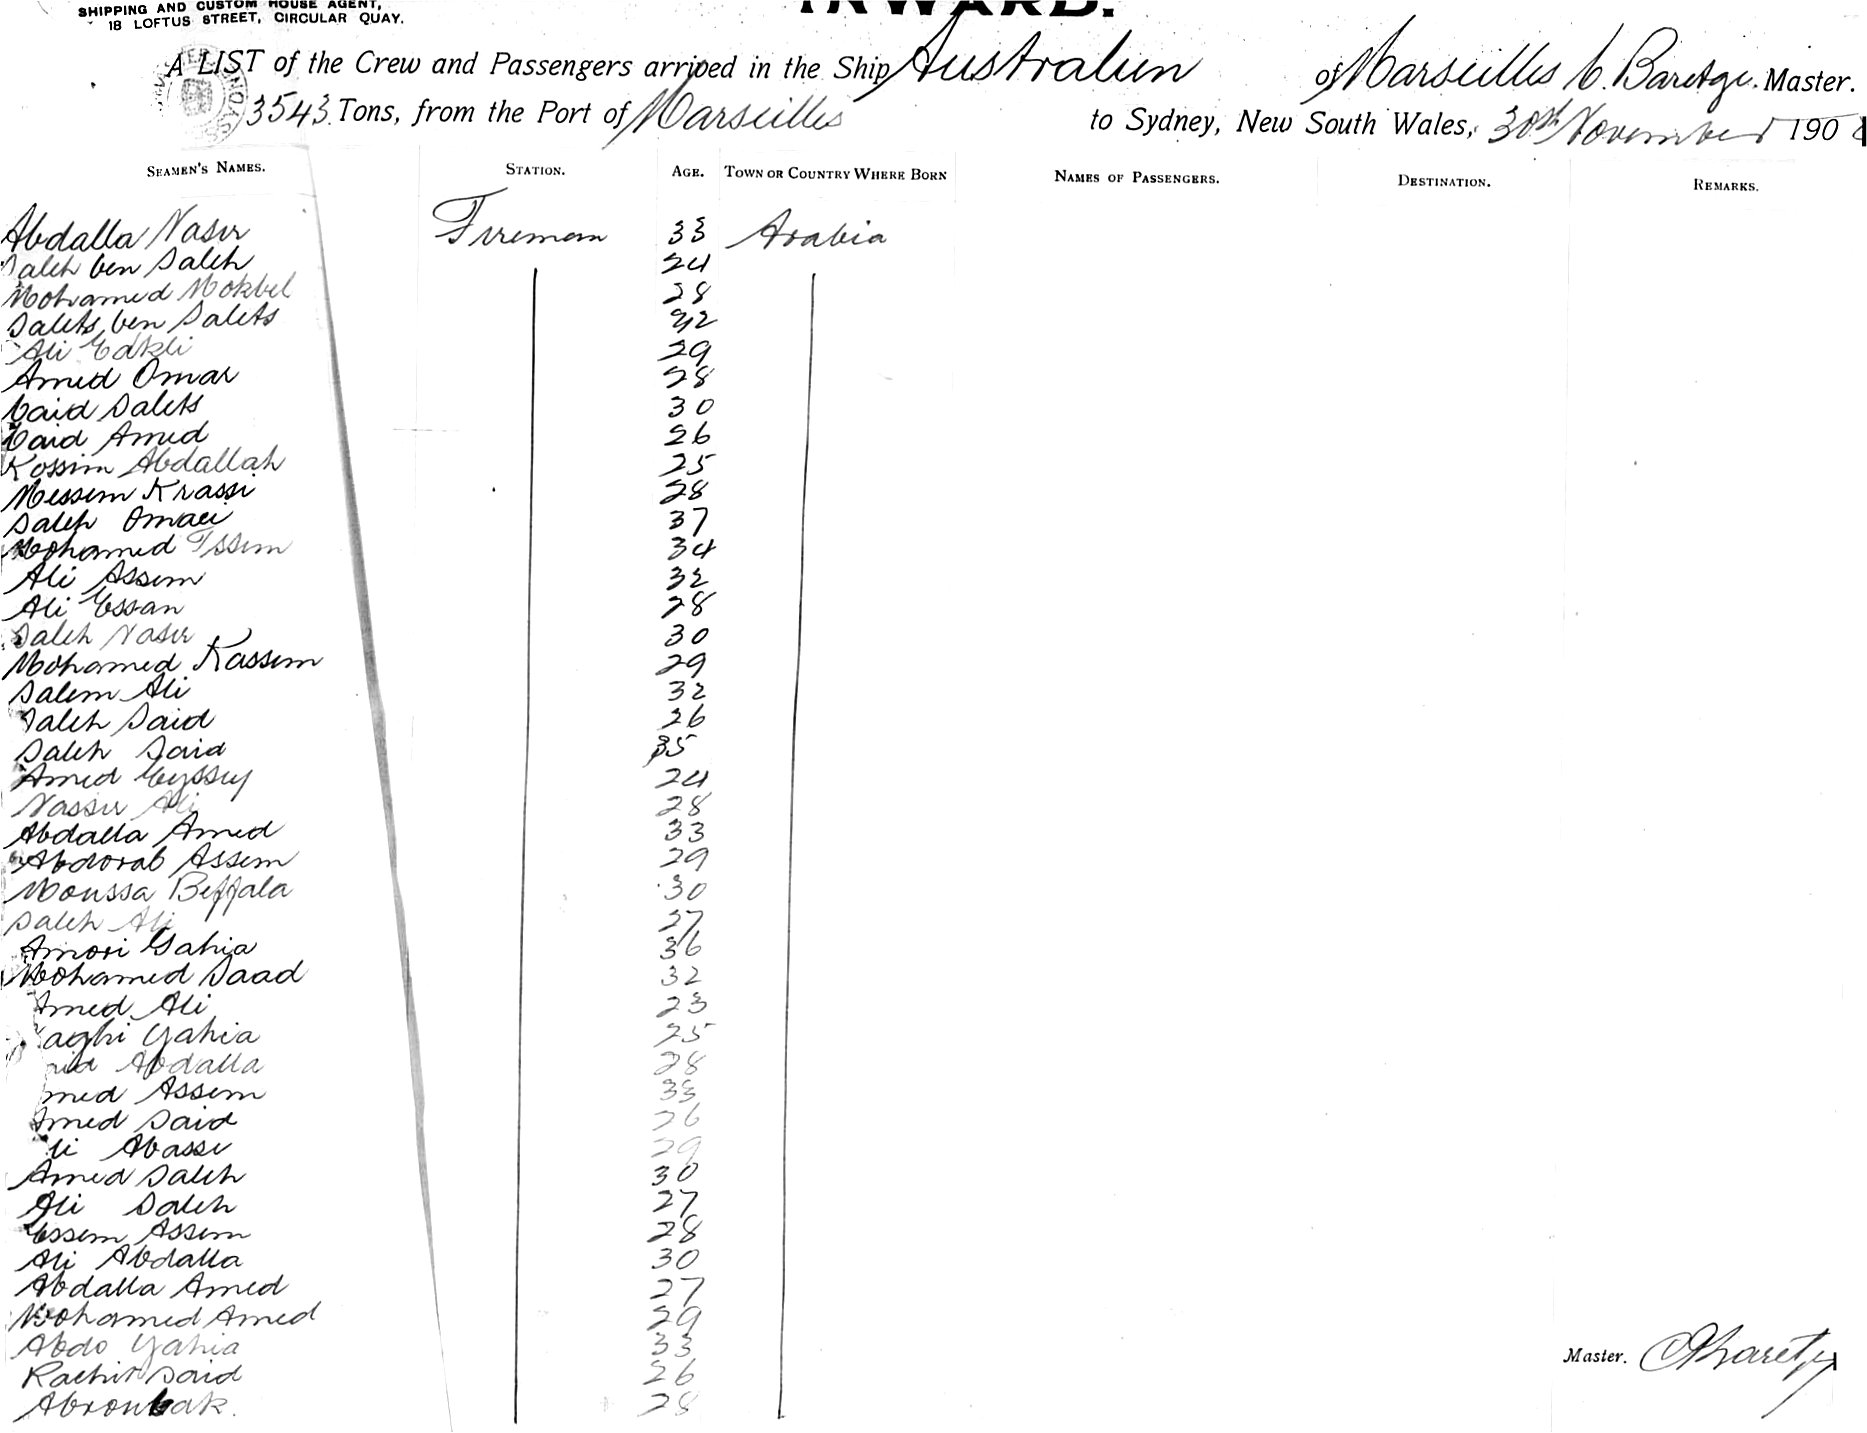 SHIPPING AND CUSTOM HOUSE AGENT,
18 LOFTUS STREET, CIRCULAR QUAY.
INWARD.
A LIST of the Crew and Passengers arrived in the Ship Australien of Marseilles C. Baretge. Master.
3543 Tons, from the Port of Marseilles to Sydney, New South Wales, 30th November 190
SEAMEN'S NAMES. STATION. AGE. TOWN OR COUNTRY WHERE BORN NAMES OF PASSENGERS. DESTINATION. REMARKS.
Abdalla Nasir Fireman 33 Arabia
Saleh ben Saleh 24
Mohamed Mokbel 28
Salehs ben Salehs 42
Ali 29
Amed Omar 28
Caid Salehs 30
Caid Amed 26
Kossim Abdallah 25
Messem Krassi 28
Saleh Omaei 37
Mohamed Issem 34
Ali Assem 32
Ali Essan 28
Saleh Nasir 30
Mohamed Kassem 29
Salem Ali 32
Saleh Said 26
Saleh Said 35
Amed Eyssey 24
Nassir Ali 28
Abdalla Amed 33
Abdorab Assem 29
Moussa Beffala 30
Saleh Ali 27
Amori Gahia 36
Mohamed Saad 32
Amed Ali 23
aghi Yahia 25
aid Abdalla 28
med Assem 33
Amed Said 26
li Abassi 29
Amed Saleh 30
Ali Saleh 27
Essem Assem 28
Ali Abdalla 30
Abdalla Amed 27
Mohamed Amed 29
Abdo Yahia 33
Master. CBaretge
Rachit Said 26
Abroubak. 28